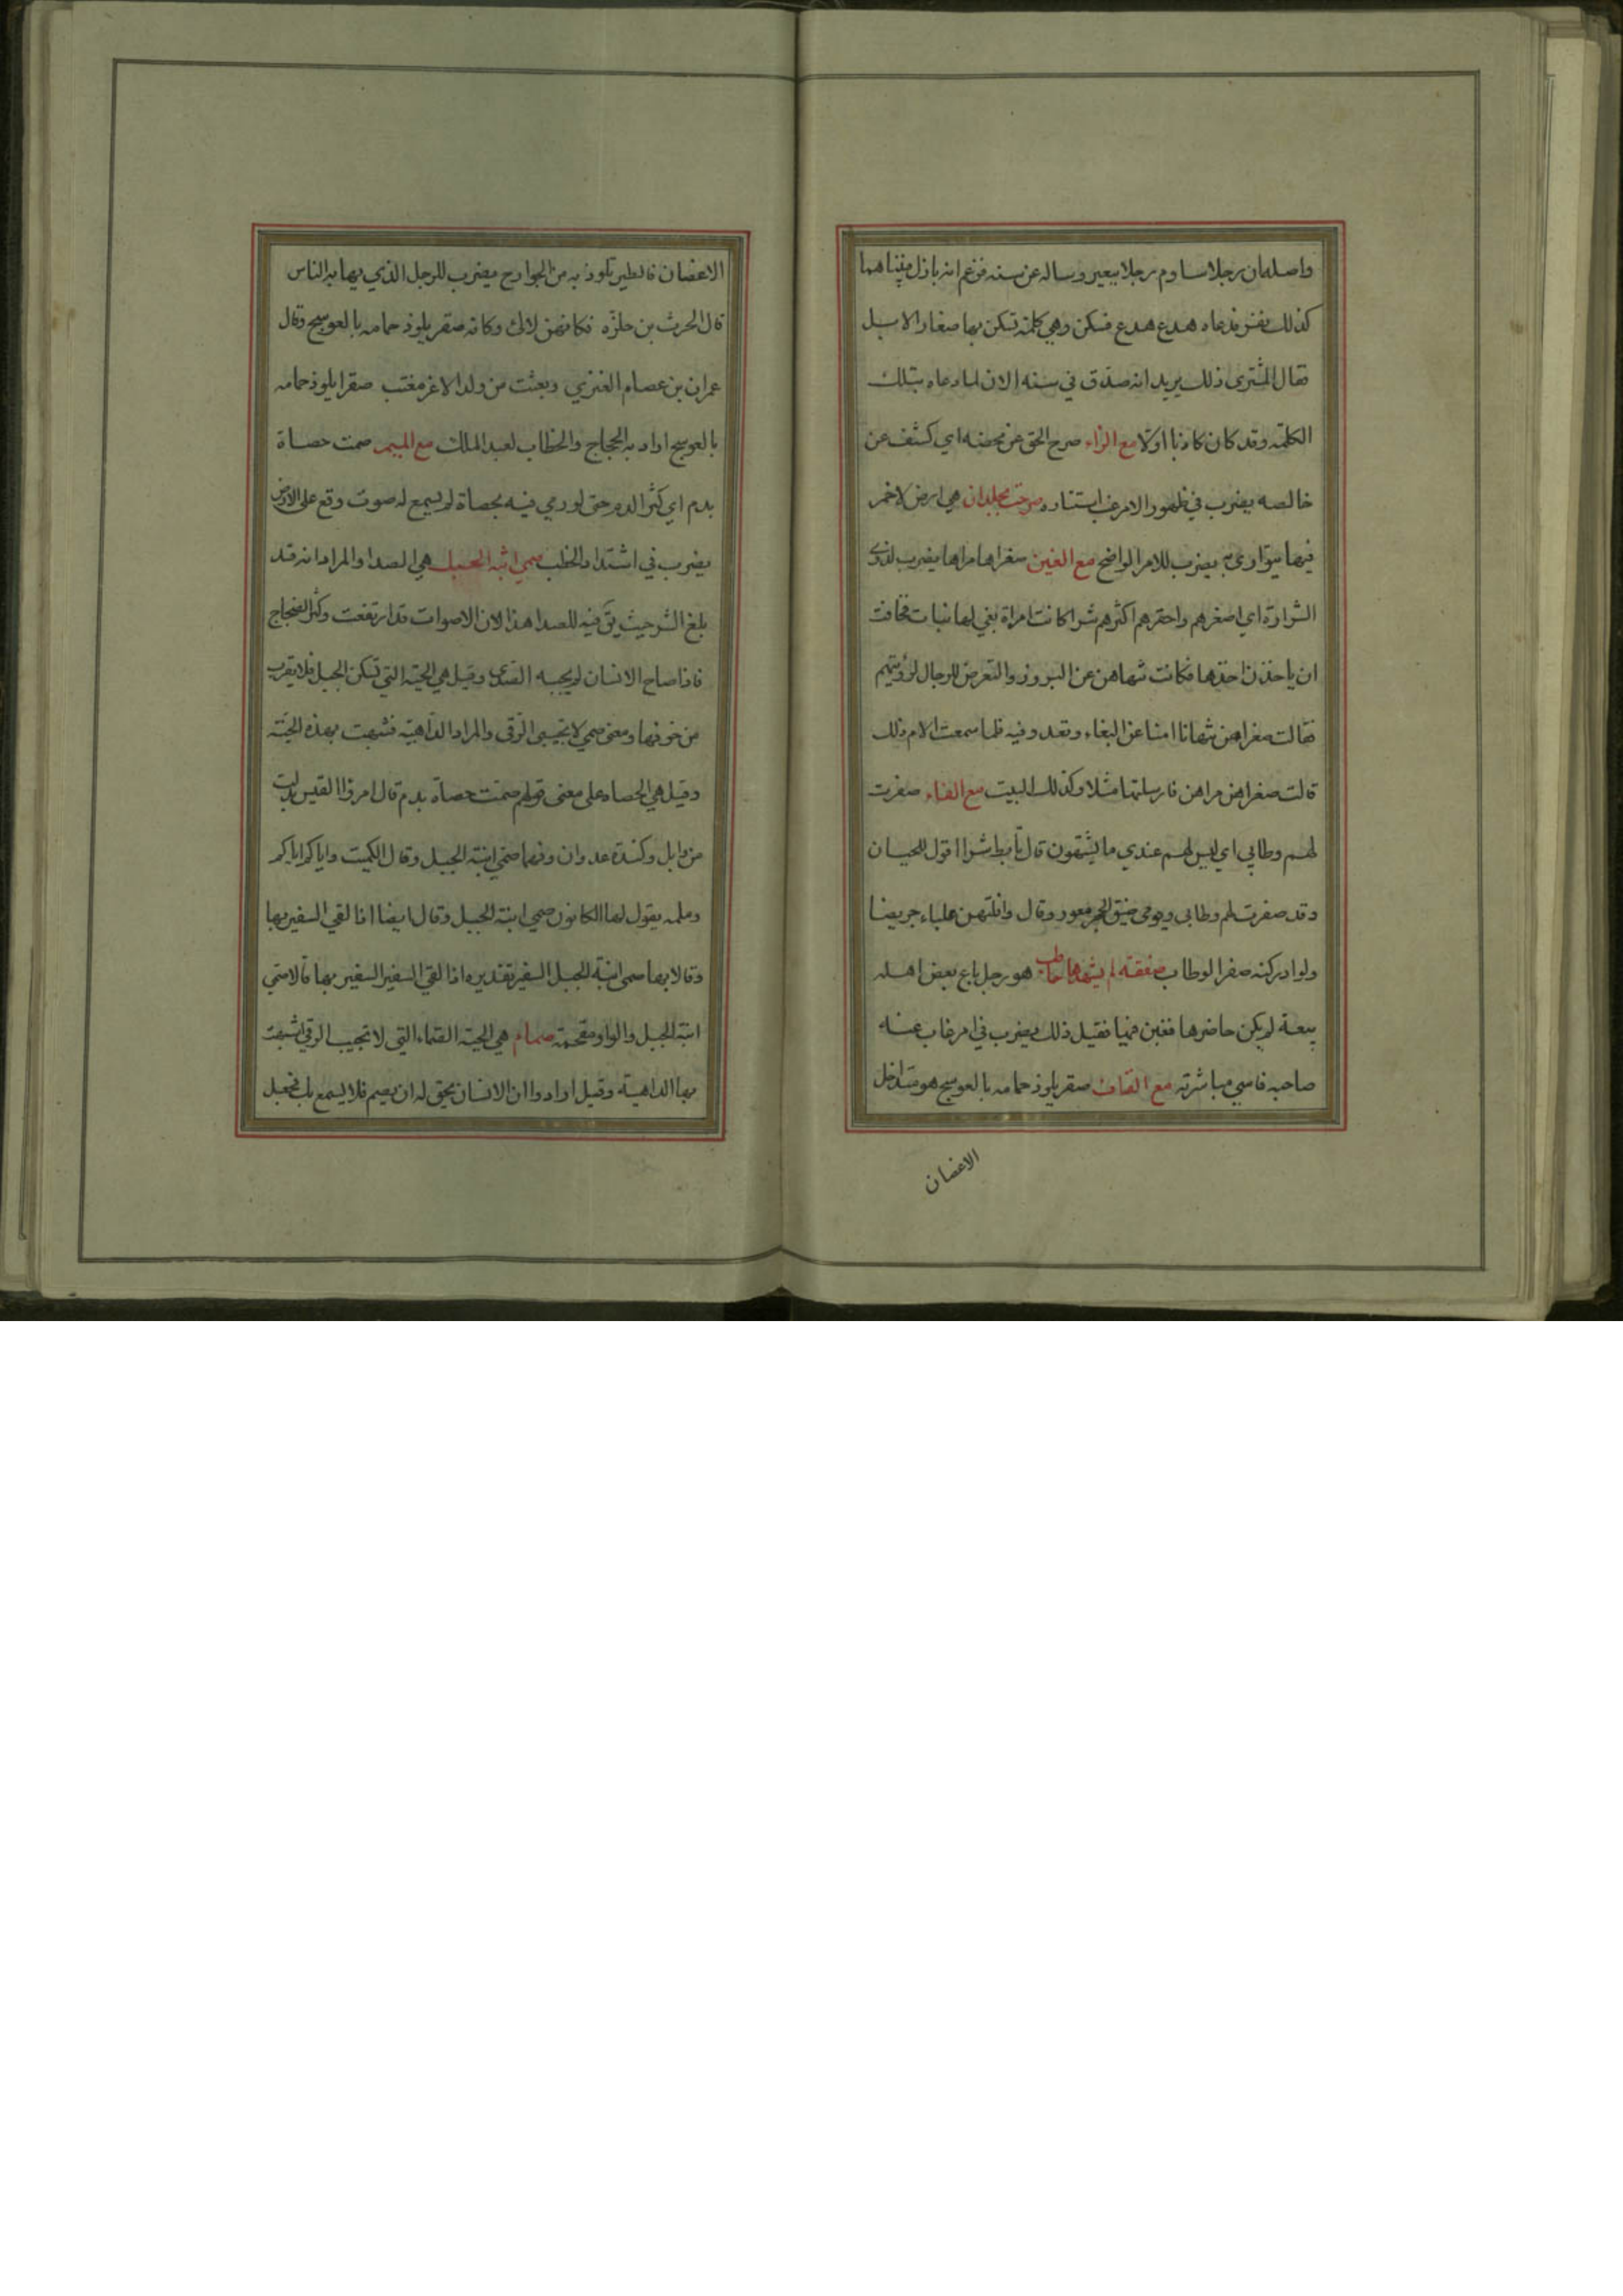 واصله ان رجلا ساوم رجلا ببعير وساله عن سنه فزعم انه بازل فبيناهما
كذلك نفر فدعاه هدع هدع فسكن وهي كلمة تسكن بها صغار الابل
فقال المشترى ذلك يريد انه صدق في سنه الان لما دعاه بتلك
الكلمة وقد كان كاذبا اولا مع الراء صرح الحق عن محضه اي كشف عن
خالصه يضرب في ظهور الامر غب استتاره صرحت بجلدان هي ارض لا خمر
فيها يتوارى به يضرب للامر الواضح مع الغين صغراها مراها يضرب لذوى
الشرارة اي اصغرهم واحقرهم اكثرهم شرا كانت امراة بغي لها بنات فخافت
ان ياخذن اخذها فكانت تنهاهن عن البروز والتعرض للرجال لرؤيتهم
فقالت صغراهن تنهانا امنا عن البغاء وتغدو فيه فلما سمعت الام ذلك
قالت صغراهن مراهن فارسلتها مثلا وكذلك البيت مع الفاء صفرت
لهم وطابي اي ليس لهم عندي ما يشتهون قال تأبط شرا اقول للحيان
وقد صفرت لهم وطابى ويومى ضيق الجحر معور وقال وافلتهن علباء جريضا
ولو ادركنه صفر الوطاب صفقة لم يشهدها حاطب هو رجل باع بعض اهله
بيعة لم يكن حاضرها فغبن فيها فقيل ذلك يضرب في امر غاب عنه
صاحبه فاسي مباشرته مع القاف صقر يلوذ حمامه بالعوسج هو متداخل
الاغصان
الاغصان فالطير تلوذ به من الجوارح يضرب للرجل الذي يهابه الناس
قال الحرث بن حلزه فكانهن لالئ وكانه صقر يلوذ حمامه بالعوسج وقال
عمران بن عصام العنزي وبعثت من ولد الاغر مغتب صقرا يلوذ حمامه
بالعوسج اراد به الحجاج والخطاب لعبد الملك مع الميم صمت حصاة
بدم اي كثر الدم حتى لو رمي فيه بحصاة لم يسمع له صوت وقع على الارض
يضرب في اشتداد الخطب صمي ابنة الجبل هي الصدا والمراد انه قد
بلغ الشر حيث يق فيه للصدا هذا لان الاصوات قد ارتفعت وكثر الضجاج
فاذا صاح الانسان لم يجبه الصدى وقيل هي الحية التي تسكن الجبل فلا يقرب
من خوفها ومعنى صمي لا تجيبى الرقى والمراد الداهية فشبهت بهذه الحية
وقيل هي الحصاه على معنى قولهم صمت حصاة بدم قال امرؤ القيس بدلت
من وابل وكندة عدوان وفهما صمي ابنة الجبل وقال الكميت واياكم اياكم
وملمه يقول لها الكانون صمي ابنة الجبل وقال ايضا اذا لقي السفير بها
وقالا بها صمى ابنة الجبل السفير تقديره اذا لقي السفير السفير بها قالا صمي
ابنة الجبل والواو مقحمة صمام هي الحية الصماء التي لا تجيب الرقي شبهت
بها الداهية وقيل ارادوا ان الانسان يحق له ان يصم فلا يسمع بل تجعل